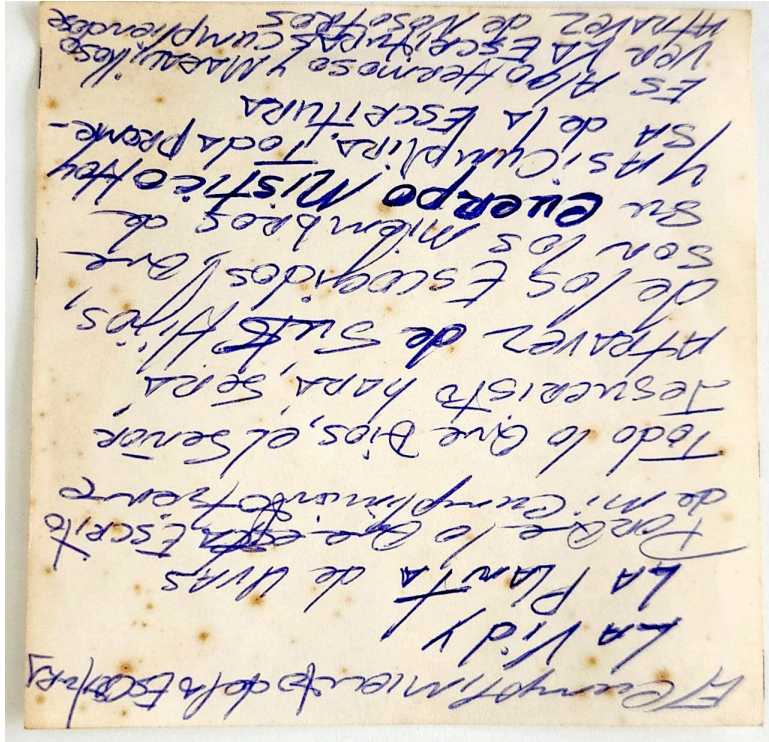 El Cumplimiento de la Escritura
LA Vid y
LA Planta de UVAS
Porque lo Que está Escrito
de Mi, Cumplimiento tiene
Todo lo Que Dios, el Señor
Jesucristo hará, Será,
Atravez de Sus Hijos,
de los Escogidos, Que
Son los Miembros de
Su Cuerpo Mistico Hoy
Y Asi Cumplira, Toda prome-
sa de la Escritura
Es Algo Hermoso y Maravilloso
Ver LA EscrituraS Cumpliendose
Atravez de Nosotros